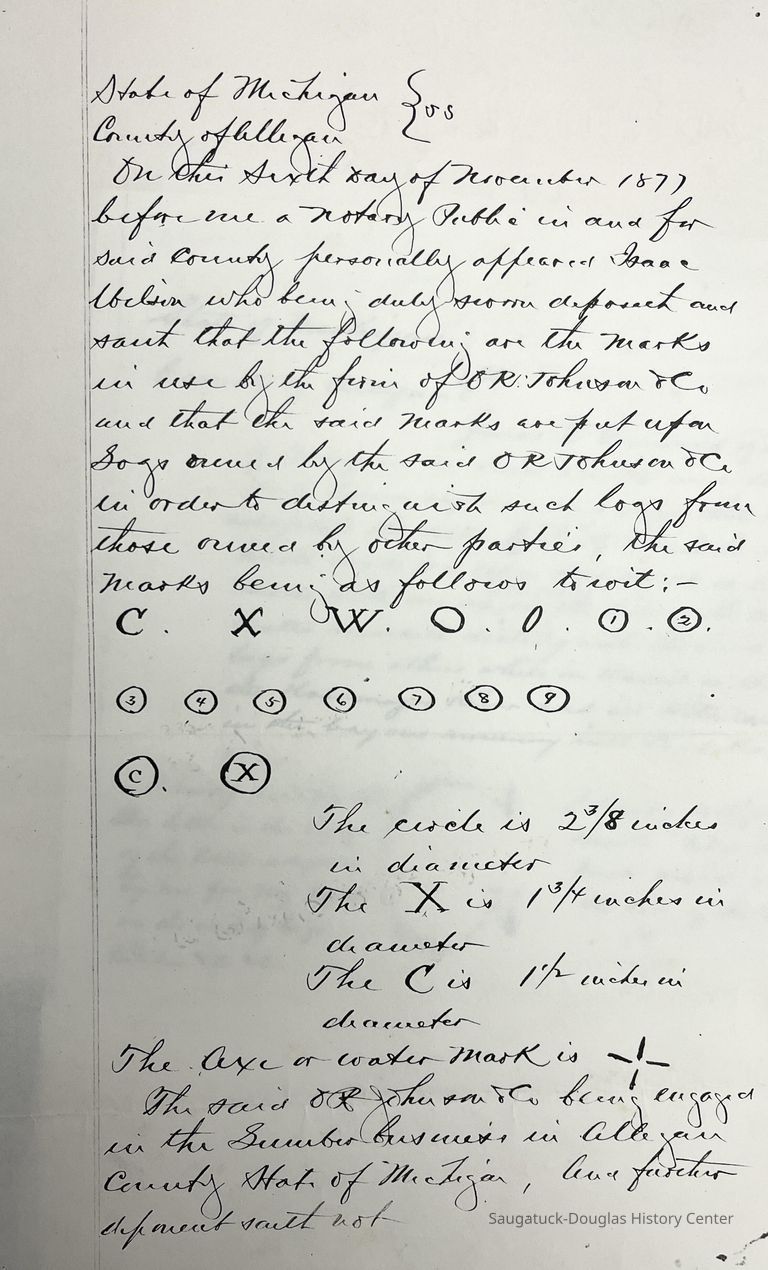 State of Michigan } ss
County of Allegan
On this Sixth Day of November 1877
before me a Notary Public in and for
said County personally appeared Isaac
Wilson who being duly sworn deposeth and
saith that the following are the Marks
in use by the firm of O R. Johnson & Co
and that the said Marks are put upon
Logs owned by the said O R Johnson & Co
in order to distinguish such logs from
those owned by other parties, the said
Marks being as follows to wit:—
C. X W. O. 0. ① . ②.
③ ④ ⑤ ⑥ ⑦ ⑧ ⑨
Ⓒ. Ⓧ
The circle is 2 3/8 inches
in diameter
The X is 1 3/4 inches in
diameter
The C is 1 1/2 inches in
diameter
The Axe or water Mark is
The said O R Johnson & Co being engaged
in the Lumber business in Allegan
County State of Michigan, And further
deponent saith not
Saugatuck-Douglas History Center